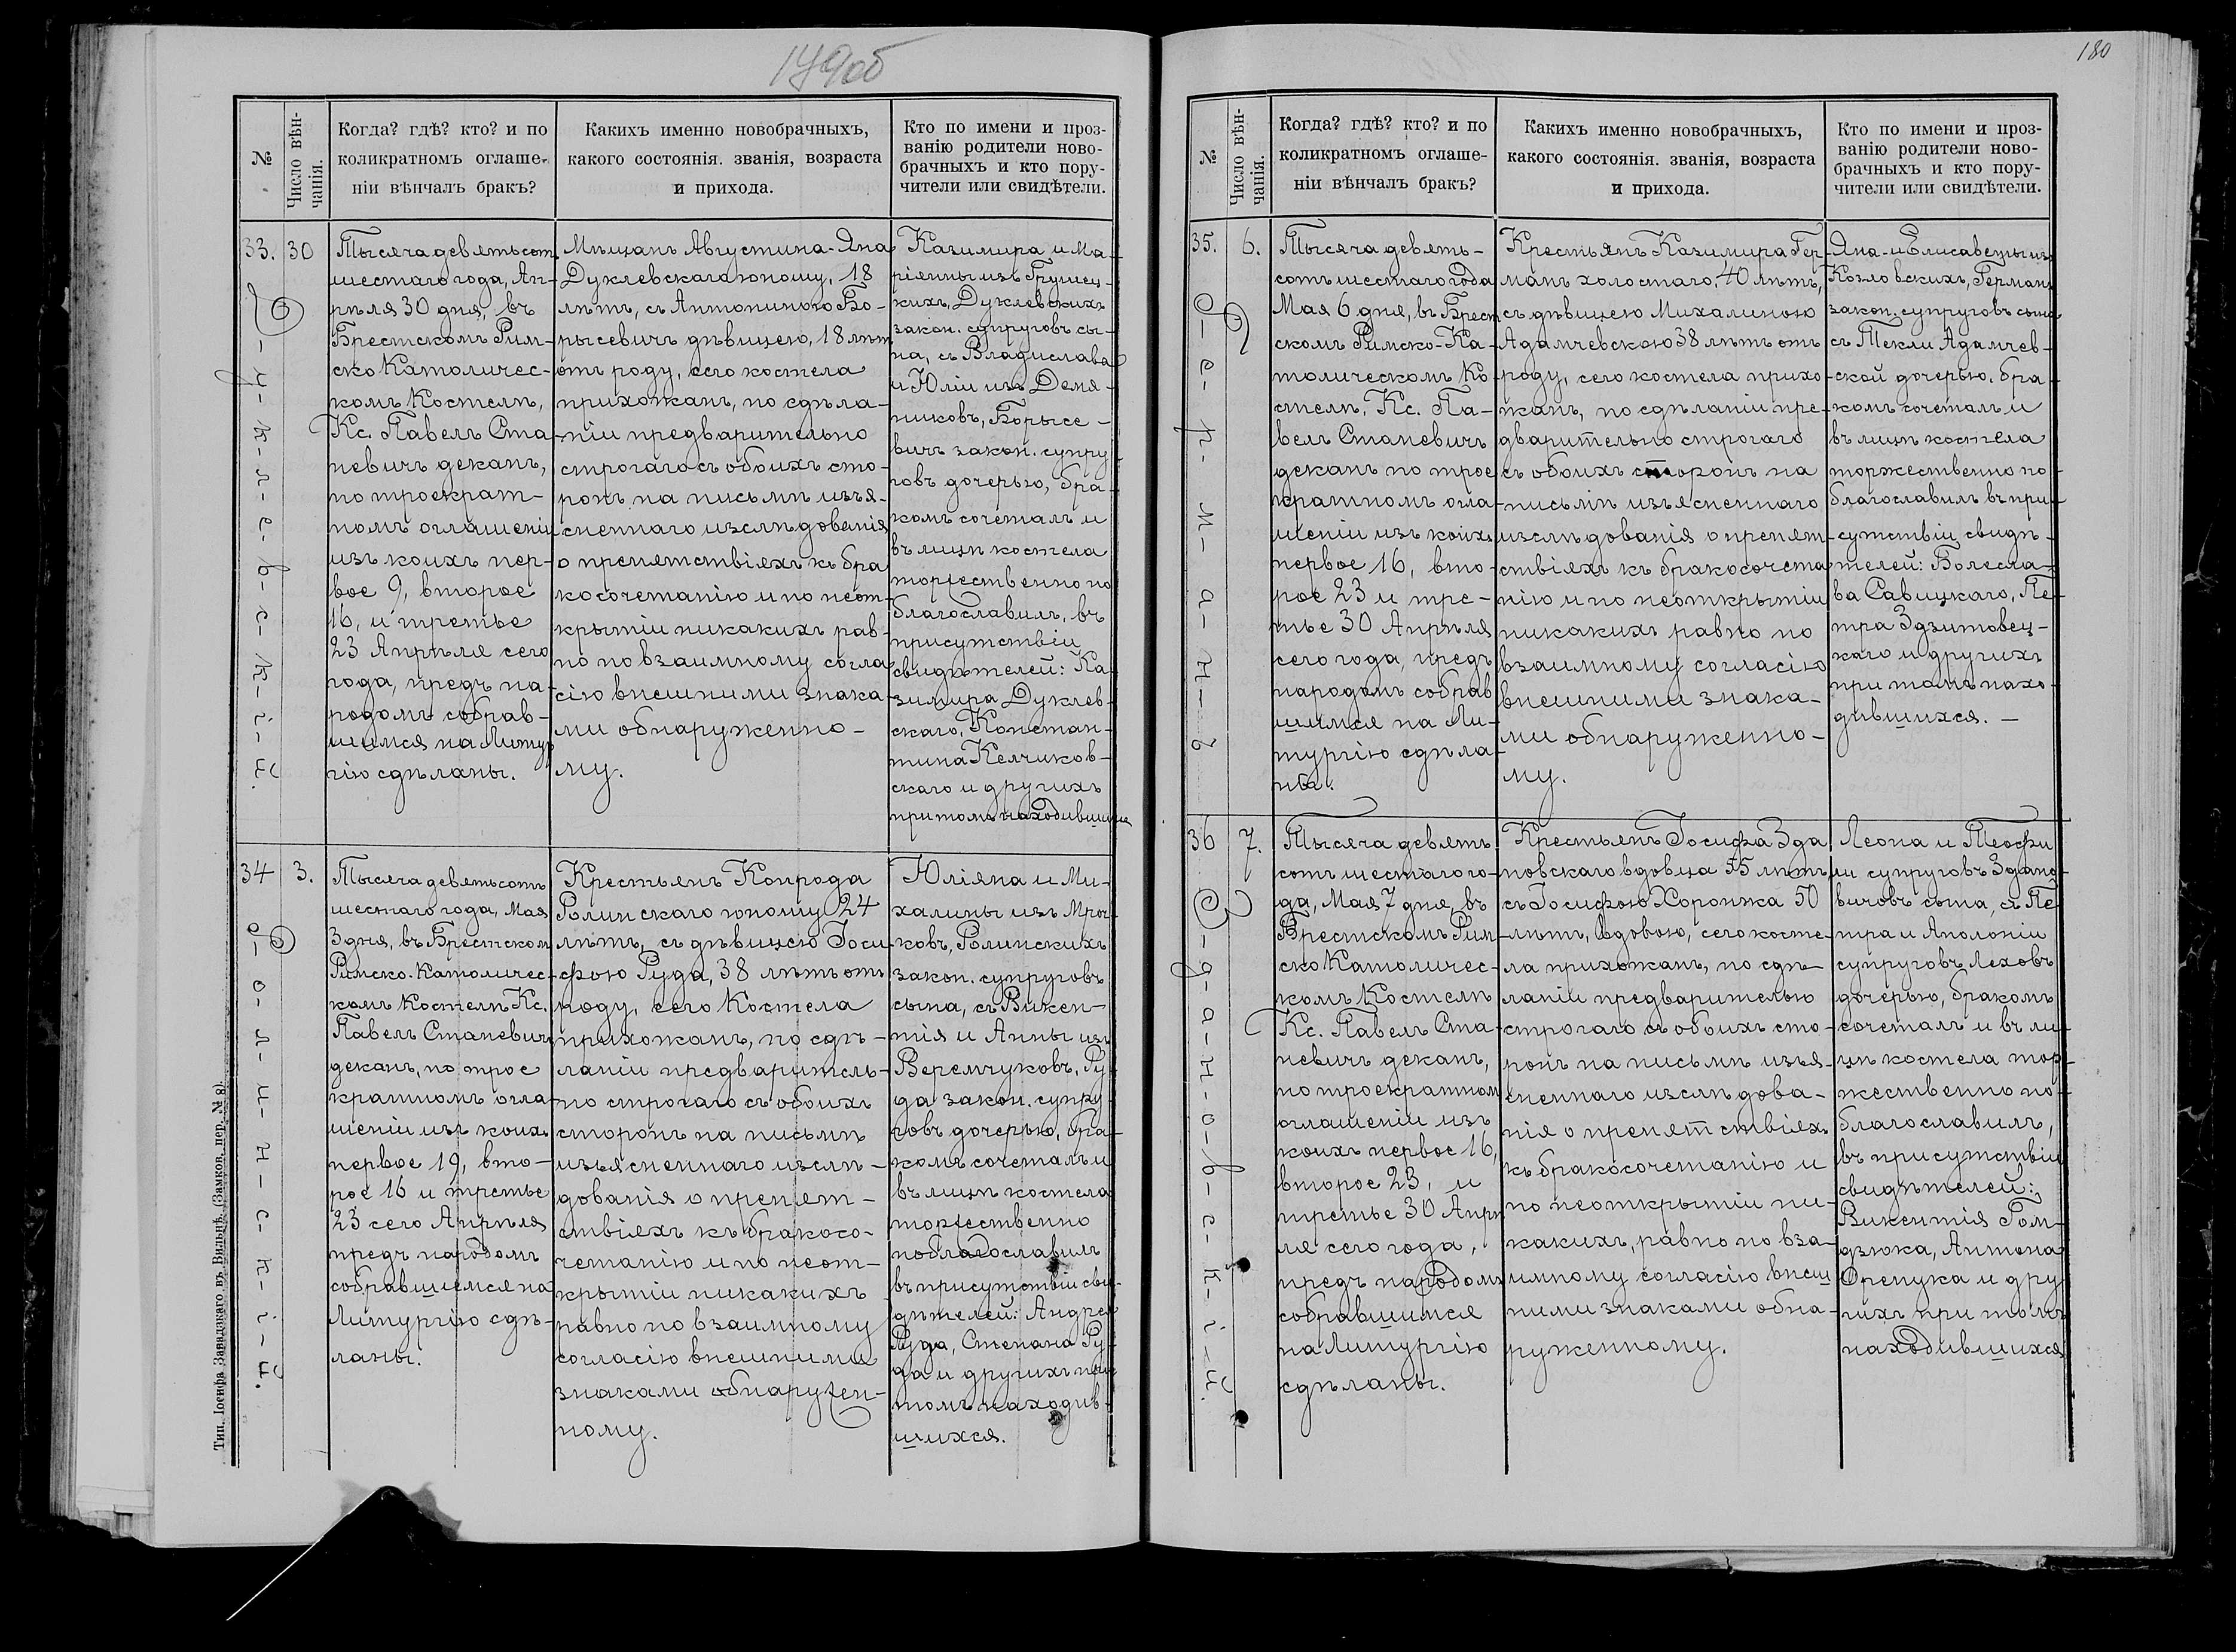 179об
№
Число вѣн-
чанія.
Когда? гдѣ? кто? и по
коликратномъ оглаше-
ніи вѣнчалъ бракъ?
Какихъ именно новобрачныхъ,
какого состоянія. званія, возраста
и прихода.
Кто по имени и проз-
ванію родители ново-
брачныхъ и кто пору-
чители или свидѣтели.
33.
30
Д-у-к-л-е-в-с-к-і-й.
Тысяча девятьсот
шестаго года, Ап-
рѣля 30 дня, въ
Брестскомъ Рим-
ско Католичес-
комъ Костелѣ,
Кс. Павелъ Ста
невичъ деканъ,
по троекрат-
номъ оглашеніи
изъ коихъ пер-
вое 9, второе
16, и третье
23 Апрѣля сего
года, предъ на-
родомъ собрав-
шимся на Литур
гію сдѣланы.
Мѣщанъ Августина-Яна
Дуклевскаго юношу, 18
лѣтъ, съ Антониною Бо-
рысевичъ дѣвицею, 18 лѣт
отъ роду, сего костела
прихожанъ, по сдѣла-
ніи предварительно
строгаго съ обоихъ сто-
ронъ на письмѣ изъя-
сненнаго изслѣдованія
о препятствіяхъ къ бра
косочетанію и по неот-
крытіи никакихъ рав-
но по взаимному согла
сію внешними знака-
ми обнаруженно-
му.
Казимира и Ма-
ріянны изъ Грушец-
кихъ, Дуклевскихъ
закон. супруговъ сы-
на, съ Владислава
и Юліи изъ Демя-
никовъ, Борысе-
вичъ закон. супру
говъ дочерью, бра-
комъ сочеталъ и
въ лицѣ костела
торжественно по
благославилъ, въ
присутствіи
свидѣтелей: Ка-
зимира Дуклев-
скаго, Констан-
тина Келчиков-
скаго и другихъ
при томъ находившихся
34
3.
Р-о-л-и-н-с-к-і-й.
Тысяча девятьсотъ
шестаго года, Мая
3 дня, въ Брестском
Римско-Католичес-
комъ Костелѣ Кс.
Павелъ Станевичъ
деканъ, по трое
кратномъ огла-
шеніи изъ коихъ
первое 19, вто-
рое 16 и третье
23 сего Апрѣля
предъ народомъ
собравшимся на
Литургію сдѣ-
ланы.
Крестьянъ Конрода
Ролинскаго юношу 24
лѣтъ, съ дѣвицею Іоси
фою Руда, 38 лѣтъ отъ
роду, сего Костела
прихожанъ, по сдѣ-
ланіи предваритель-
но строгаго съ обоихъ
сторонъ на письмѣ
изъясненнаго изслѣ-
дованія о препят-
ствіяхъ къ бракосо-
четанію и по неот-
крытіи никакихъ
равно по взаимному
согласію внешними
знаками обнаружен-
ному.
Юліяна и Ми-
халины изъ Мроч-
ковъ, Ролинскихъ
закон. супруговъ
сына, съ Викен-
тія и Анны изъ
Веремчуковъ, Ру-
да закон. супру-
говъ дочерью, бра-
комъ сочеталъ и
въ лицѣ костела
торжественно
поблагославилъ
въ присутствіи сви-
дѣтелей: Андрея
Руда, Степана Ру-
да и другихъ при
томъ находив-
шихся.
Тип. Іосифа Завадзкаго въ Вильнѣ. (Замков. пер. № 8)
180
№
Число вѣн-
чанія.
Когда? гдѣ? кто? и по
коликратномъ оглаше-
ніи вѣнчалъ бракъ?
Какихъ именно новобрачныхъ,
какого состоянія. званія, возраста
и прихода.
Кто по имени и проз-
ванію родители ново-
брачныхъ и кто пору-
чители или свидѣтели.
35.
6.
Г-е-р-м-а-н-ъ
Тысяча девять-
сотъ шестаго года
Мая 6 дня, въ Брест
скомъ Римско-Ка-
толическомъ Ко-
стелѣ. Кс. Па-
велъ Станевичъ
деканъ по трое
кратномъ огла-
шеніи изъ коихъ
первое 16, вто-
рое 23 и тре-
тье 30 Апрѣля
сего года, предъ
народомъ собрав
шимся на Ли-
тургію сдѣла-
ны.
Крестьянъ Казимира Гер-
манъ холостаго, 40 лѣтъ,
съ дѣвицею Михалиною
Адамчевскою 38 лѣтъ отъ
роду, сего костела прихо-
жанъ, по сдѣланіи пре-
дварительно строгаго
съ обоихъ сторонъ на
письмѣ изъясненнаго
изслѣдованія о препят-
ствіяхъ къ бракосочета
нію и по неоткрытіи
никакихъ равно по
взаимному согласію
внешними знака-
ми обнаруженно-
му.
Яна и Елисаветы изъ
Козловскихъ, Германъ
закон. супруговъ сына
съ Текли Адамчев-
ской дочерью, бра-
комъ сочеталъ и
въ лицѣ костела
торжественно по-
благославилъ въ при-
сутствіи свидѣ-
телей: Болесла-
ва Савицкаго, Пе-
тра Здзитовец-
каго и другихъ
при томъ нахо-
дившихся.
36
7.
З-д-а-н-о-в-с-к-і-й.
Тысяча девять
сотъ шестаго го-
да, Мая 7 дня, въ
Брестскомъ Рим-
ско Католичес-
комъ Костелѣ
Кс. Павелъ Ста-
невичъ деканъ,
по троекратном
оглашеніи изъ
коихъ первое 16,
второе 23, и
третье 30 Апрѣ
ля сего года,
предъ народомъ
собравшимся
на Литургію
сдѣланы.
Крестьянъ Іосифа Зда
новскаго вдовца 55 лѣтъ
съ Іосифою Хоронжа 50
лѣтъ, вдовою, сего косте-
ла прихожанъ, по сдѣ-
ланіи предварительно
строгаго съ обоихъ сто-
ронъ на письмѣ изъя-
сненнаго изслѣдова-
нія о препятствіяхъ
къ бракосочетанію и
по неоткрытіи ни-
какихъ, равно по вза-
имному согласію внеш
ними знаками обна-
руженному.
Леона и Теофи
ли супруговъ Здано-
вичовъ сына, съ Пе
тра и Аполоніи
супруговъ Леховъ
дочерью, бракомъ
сочеталъ и въ ли-
цѣ костела тор-
жественно по-
благославилъ,
въ присутствіи
свидѣтелей:
Викентія Гом-
дзюка, Антона
Орепука и дру
гихъ при томъ
находившихся